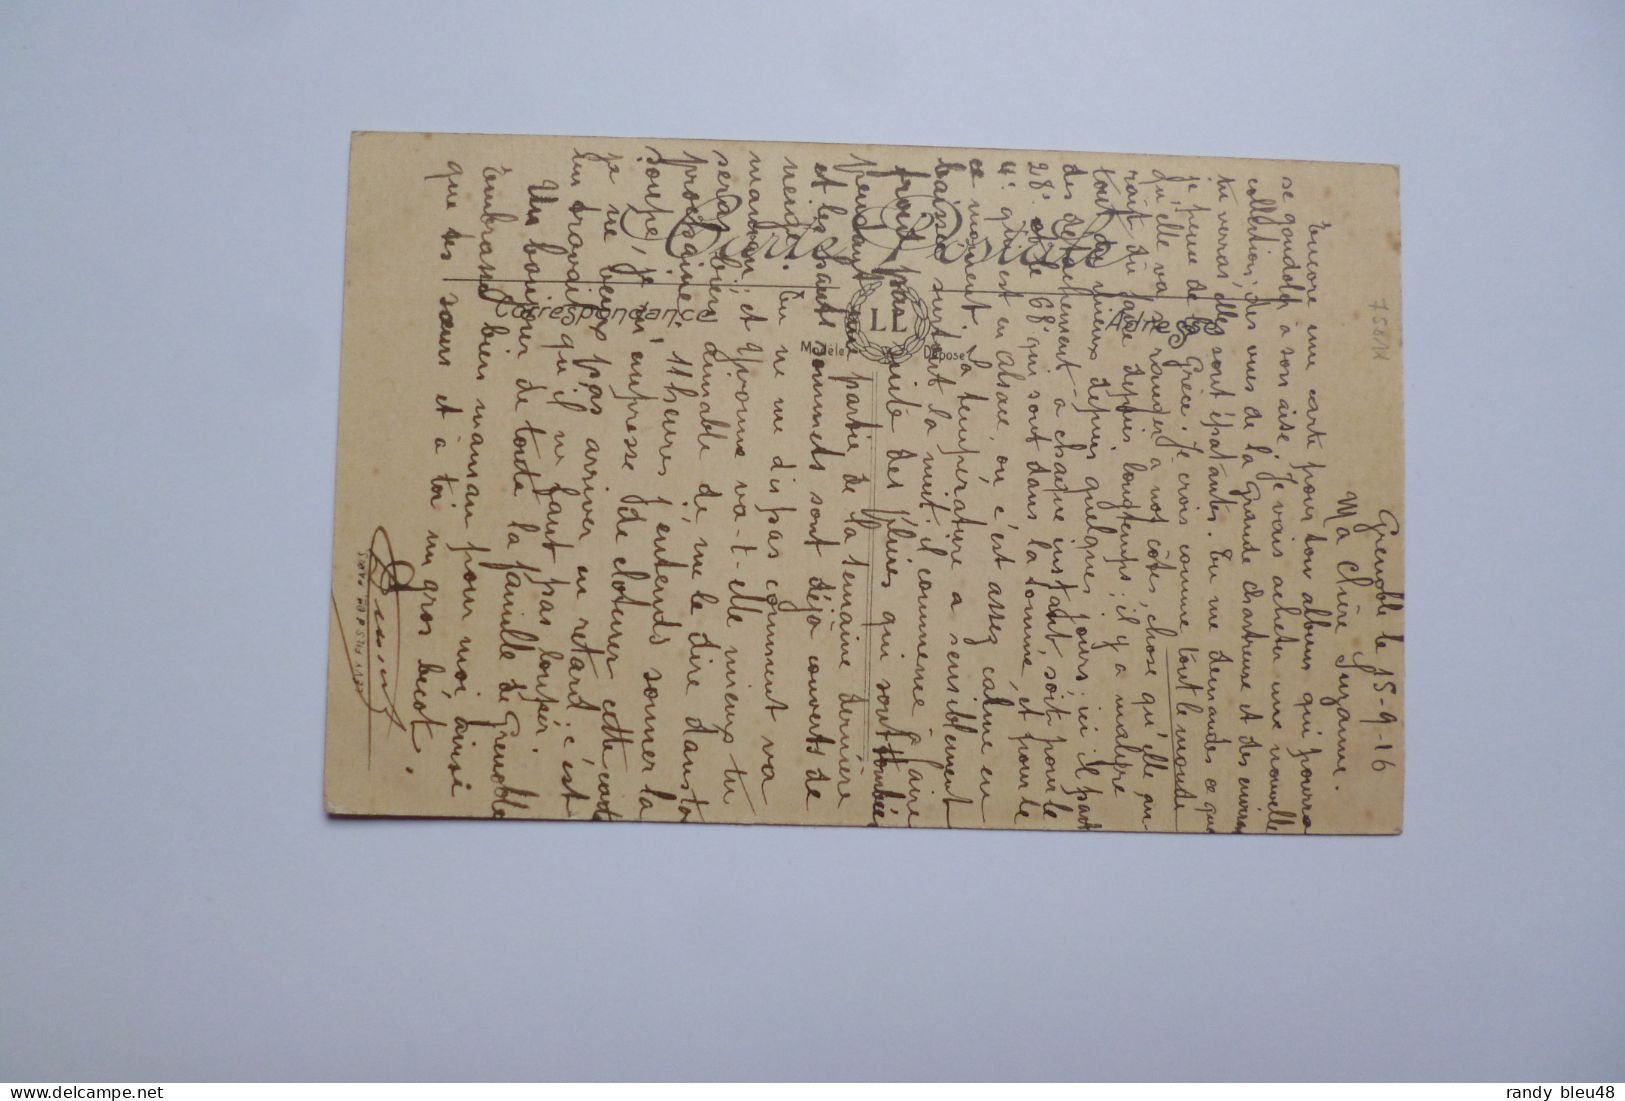 Grenoble le 15-9-16
Ma chère Suzanne.
Encore une carte pour ton album qui pourra
se gondoler à son aise. Je vais acheter une nouvelle
collection; des vues de la Grande chartreuse et des environs
tu verras, elles sont épatantes. Tu me demandes ce que
je pense de la Grèce. Je crois comme tout le monde
qu'elle va se ranger à nos côtés, chose qu'elle au-
rait dû faire depuis longtemps; il y a malgré
tout du mieux depuis quelques jours; ici il part
des détachements à chaque instant, soit pour le
28e et le 68e qui sont dans la Somme, et pour le
4e qui est en Alsace où c'est assez calme en
ce moment. La température a sensiblement
baissé surtout la nuit; il commence à faire
froid par suite des pluies qui sont tombées
pendant une partie de la semaine dernière
et les hauts sommets sont déjà couverts de
neige. Tu ne me dis pas comment va
maman, et Yvonne va-t-elle mieux tu
seras bien aimable de me le dire dans ta
prochaine. 11 heures j'entends sonner la
soupe, je m'empresse de cloturer cette carte
je ne veux pas arriver en retard; c'est
un travail qu'il ne faut pas louper.
Un bonjour de toute la famille de Grenoble
Embrasse bien maman pour moi ainsi
que tes sœurs et à toi un gros bécot.
Carte Postale
Correspondance
Adresse
Modèle Déposé
LE
randy bleu48